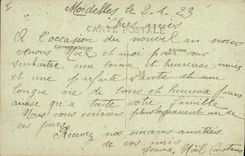 Moidelles le 2-1-23
CARTE POSTALE
Chers amis
A l'occasion du nouvel an nous
venons Noël et moi pour vous
souhaiter une bonne et heureuse année
et une parfaite santé et une
longue vie de bons et heureux jours
ainsi qu'à toute votre famille
Nous vous écrirons plus longuement un de
ces jours.
Recevez nos sincères amitiés
de vos amis
Jeanne, Noël